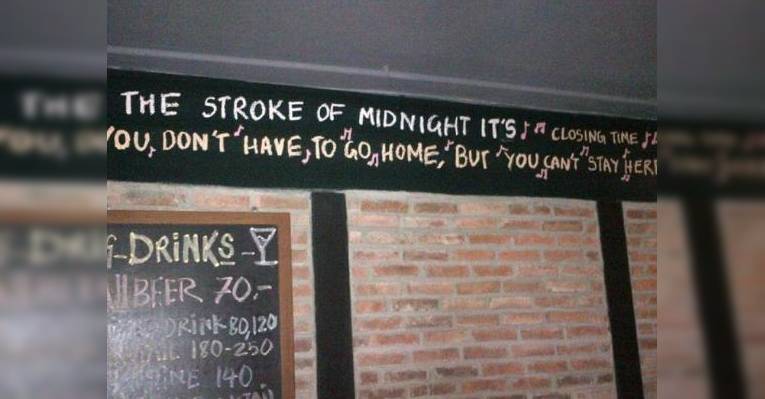 THE STROKE OF MIDNIGHT IT'S CLOSING TIME
YOU, DON'T HAVE, TO GO HOME, BUT YOU CAN'T STAY HER
DRINKS
BEER 70.-
DRINK 80,120
180-250
140